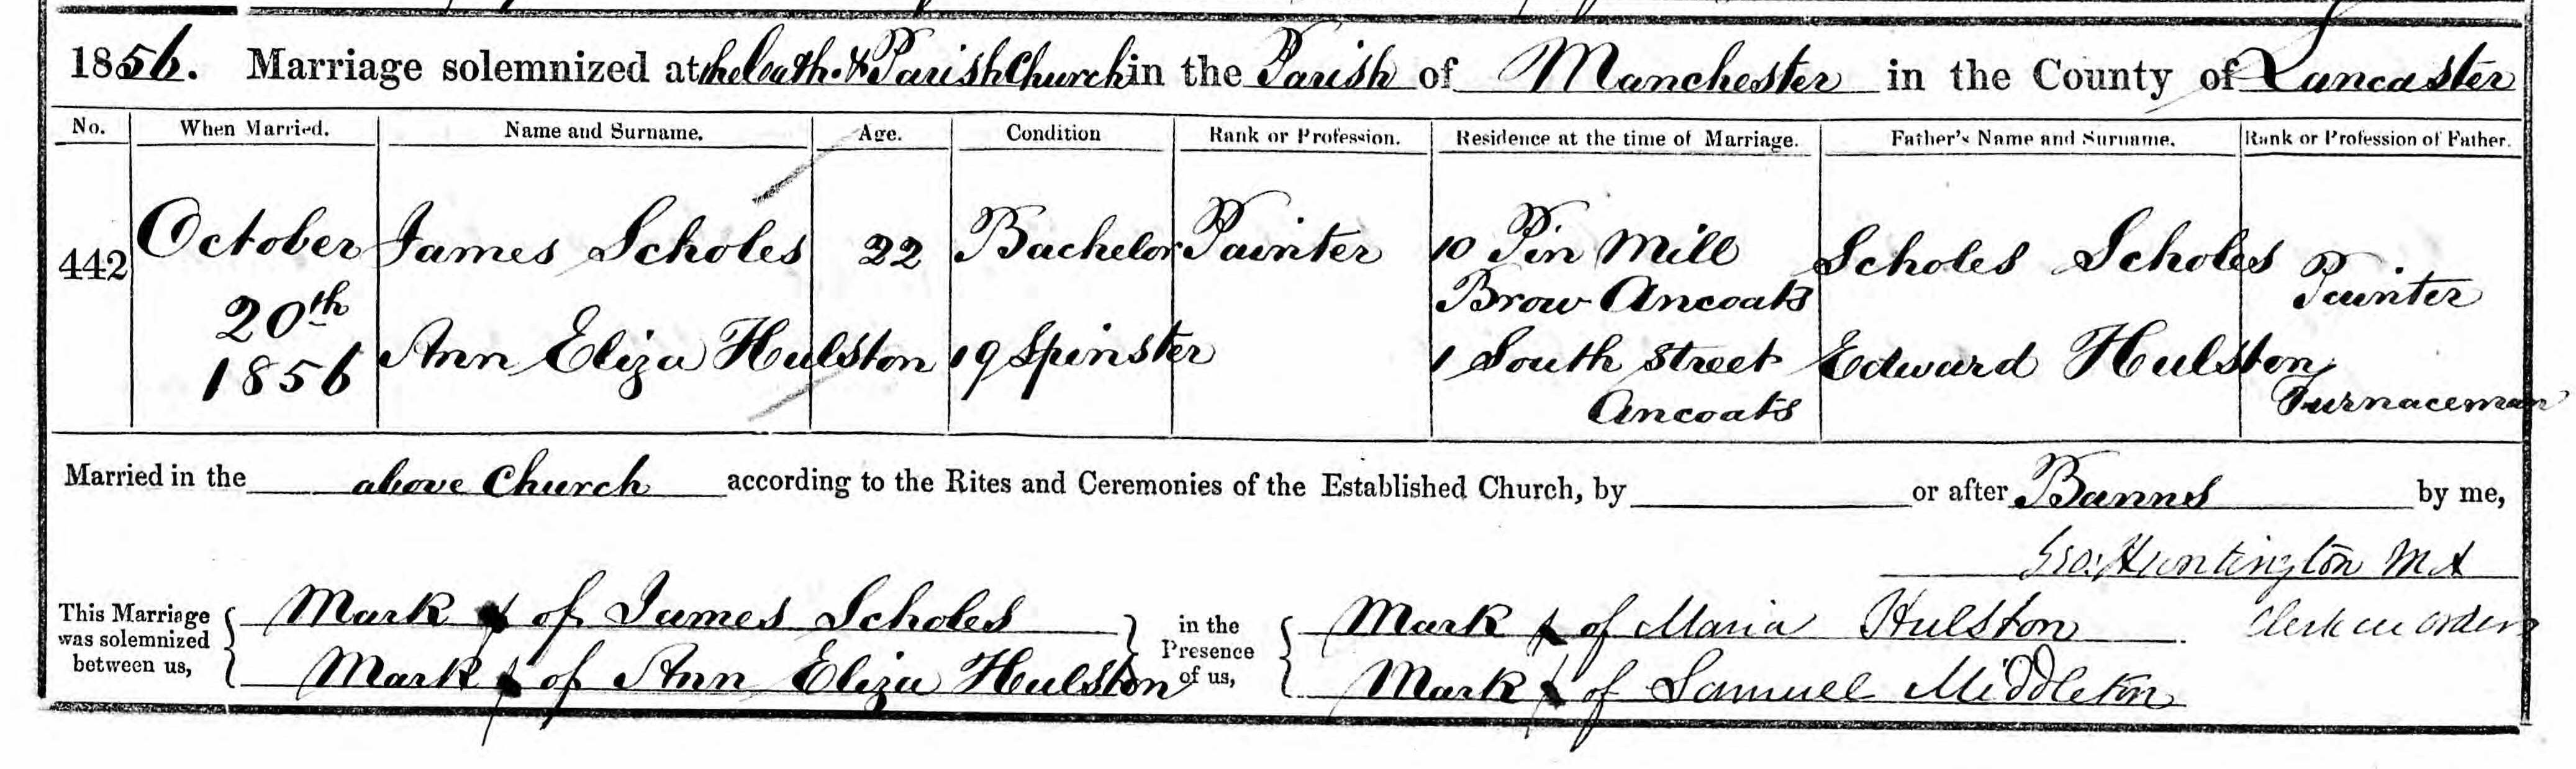 1856. Marriage solemnized at the Cath. & Parish Church in the Parish of Manchester in the County of Lancaster
No. When Married. Name and Surname. Age. Condition Rank or Profession. Residence at the time of Marriage. Father's Name and Surname. Rank or Profession of Father.
442 October James Scholes 22 Bachelor Painter 10 Pin Mill Scholes Scholes Painter
20th Brow Ancoats
1856 Ann Eliza Hulston 19 Spinster 1 South Street Edward Hulston Furnaceman
Ancoats
Married in the above Church according to the Rites and Ceremonies of the Established Church, by or after Banns by me,
Geo: Huntington M A
Clerk in orders
This Marriage was solemnized between us,
Mark x of James Scholes
Mark x of Ann Eliza Hulston
in the Presence of us,
Mark x of Maria Hulston
Mark x of Samuel Middleton